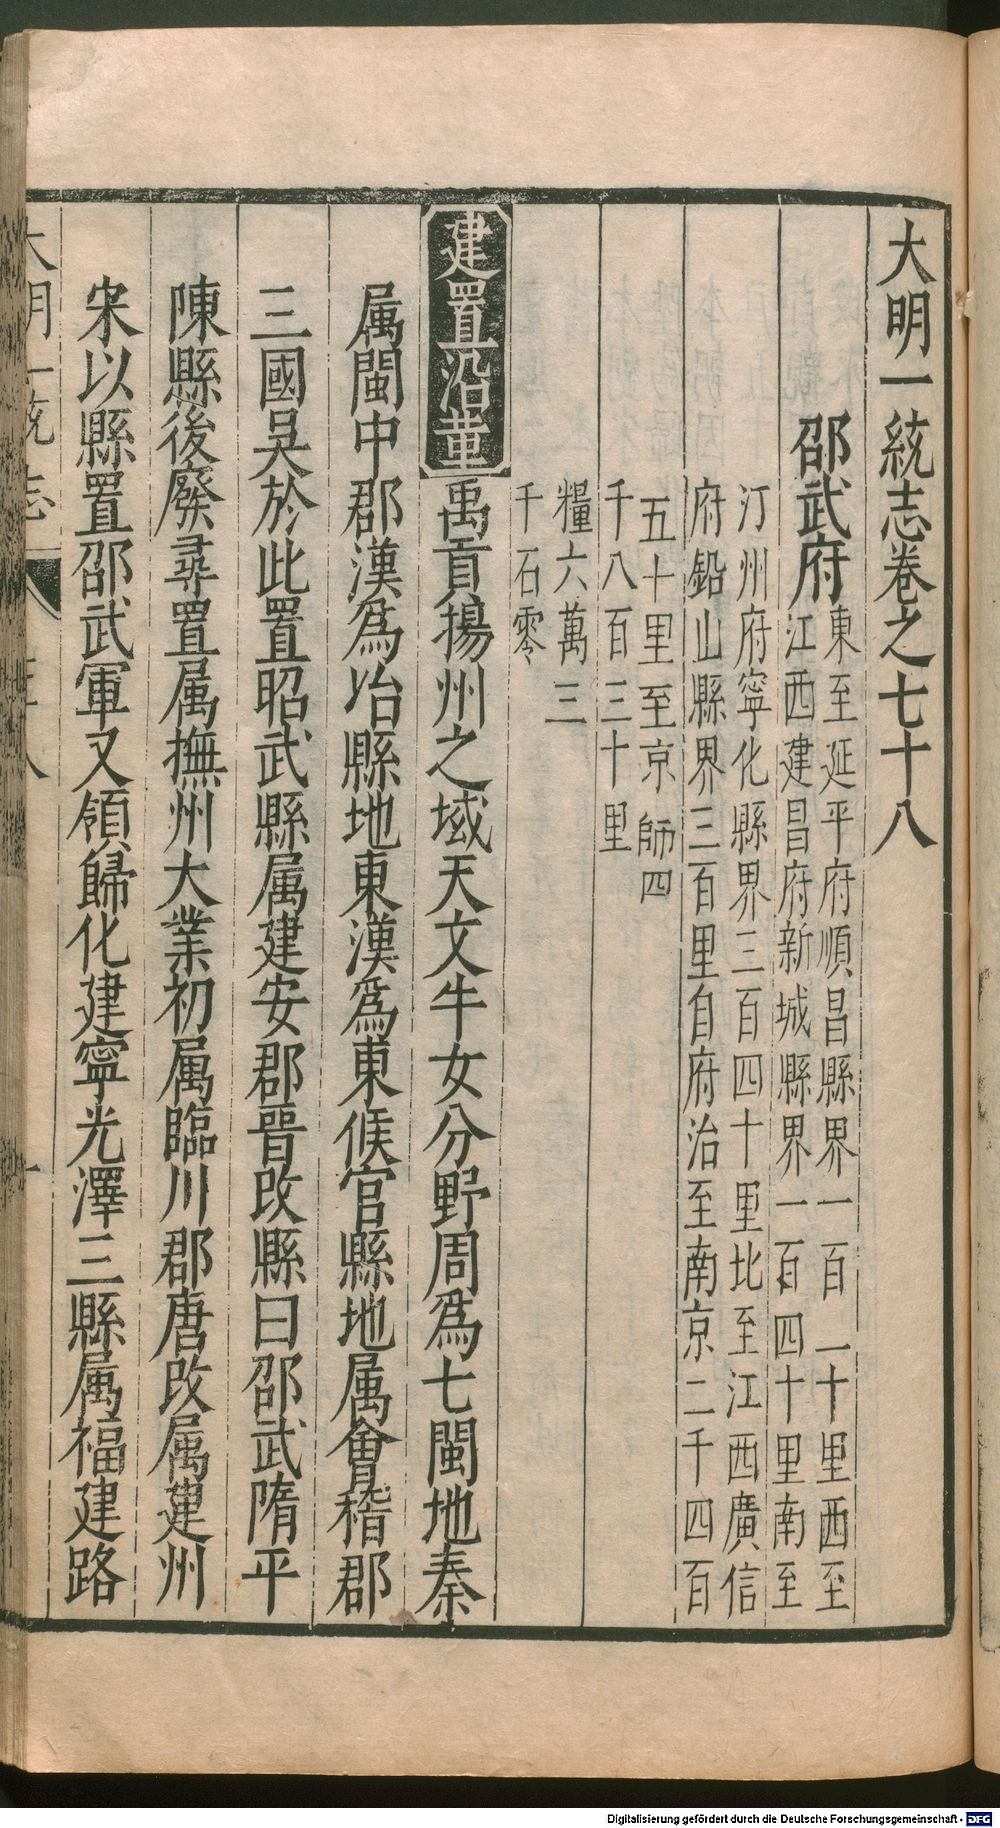 大明一統志卷之七十八
邵武府東至延平府順昌縣界一百二十里西至
江西建昌府新城縣界一百四十里南至
汀州府寧化縣界三百四十里北至江西廣信
府鉛山縣界三百里自府治至南京二千四百
五十里至京師四
千八百三十里
糧六萬三
千石零
建置沿革禹貢揚州之域天文牛女分野周為七閩地秦
属閩中郡漢為冶縣地東漢為東候官縣地属會稽郡
三國吳於此置昭武縣属建安郡晉改縣曰邵武隋平
陳縣後廢尋置属撫州大業初属臨川郡唐改属建州
宋以縣置邵武軍又領歸化建寧光澤三縣属福建路
Digitalisierung gefördert durch die Deutsche Forschungsgemeinschaft - DFG